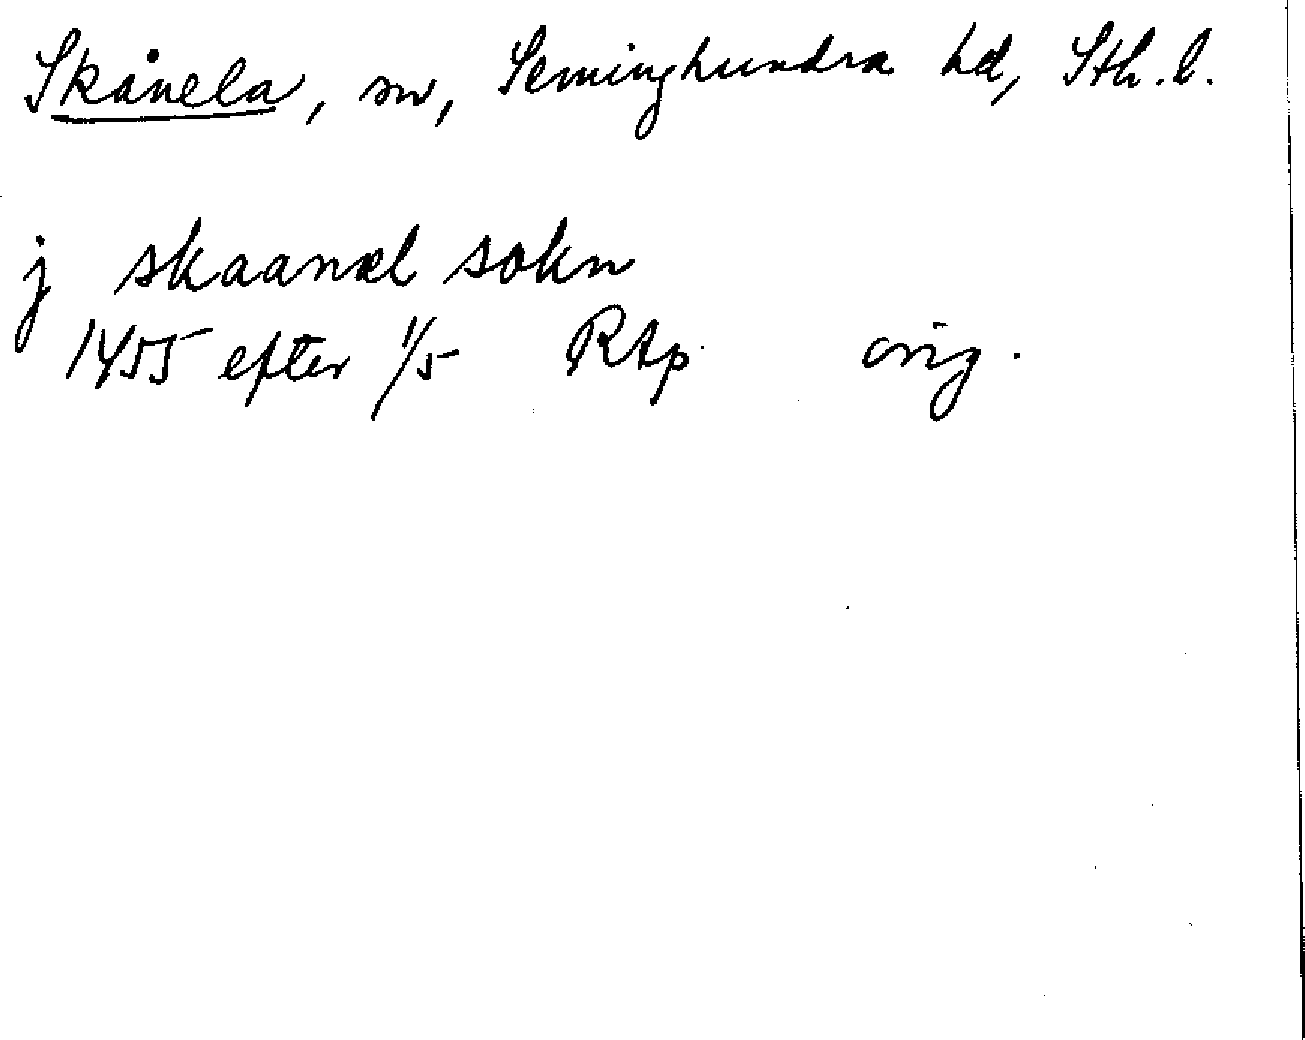 Skånela, sn, Seminghundra hd, Sth. l.
j skaanæl sokn
1455 efter 1/5 RAp orig.